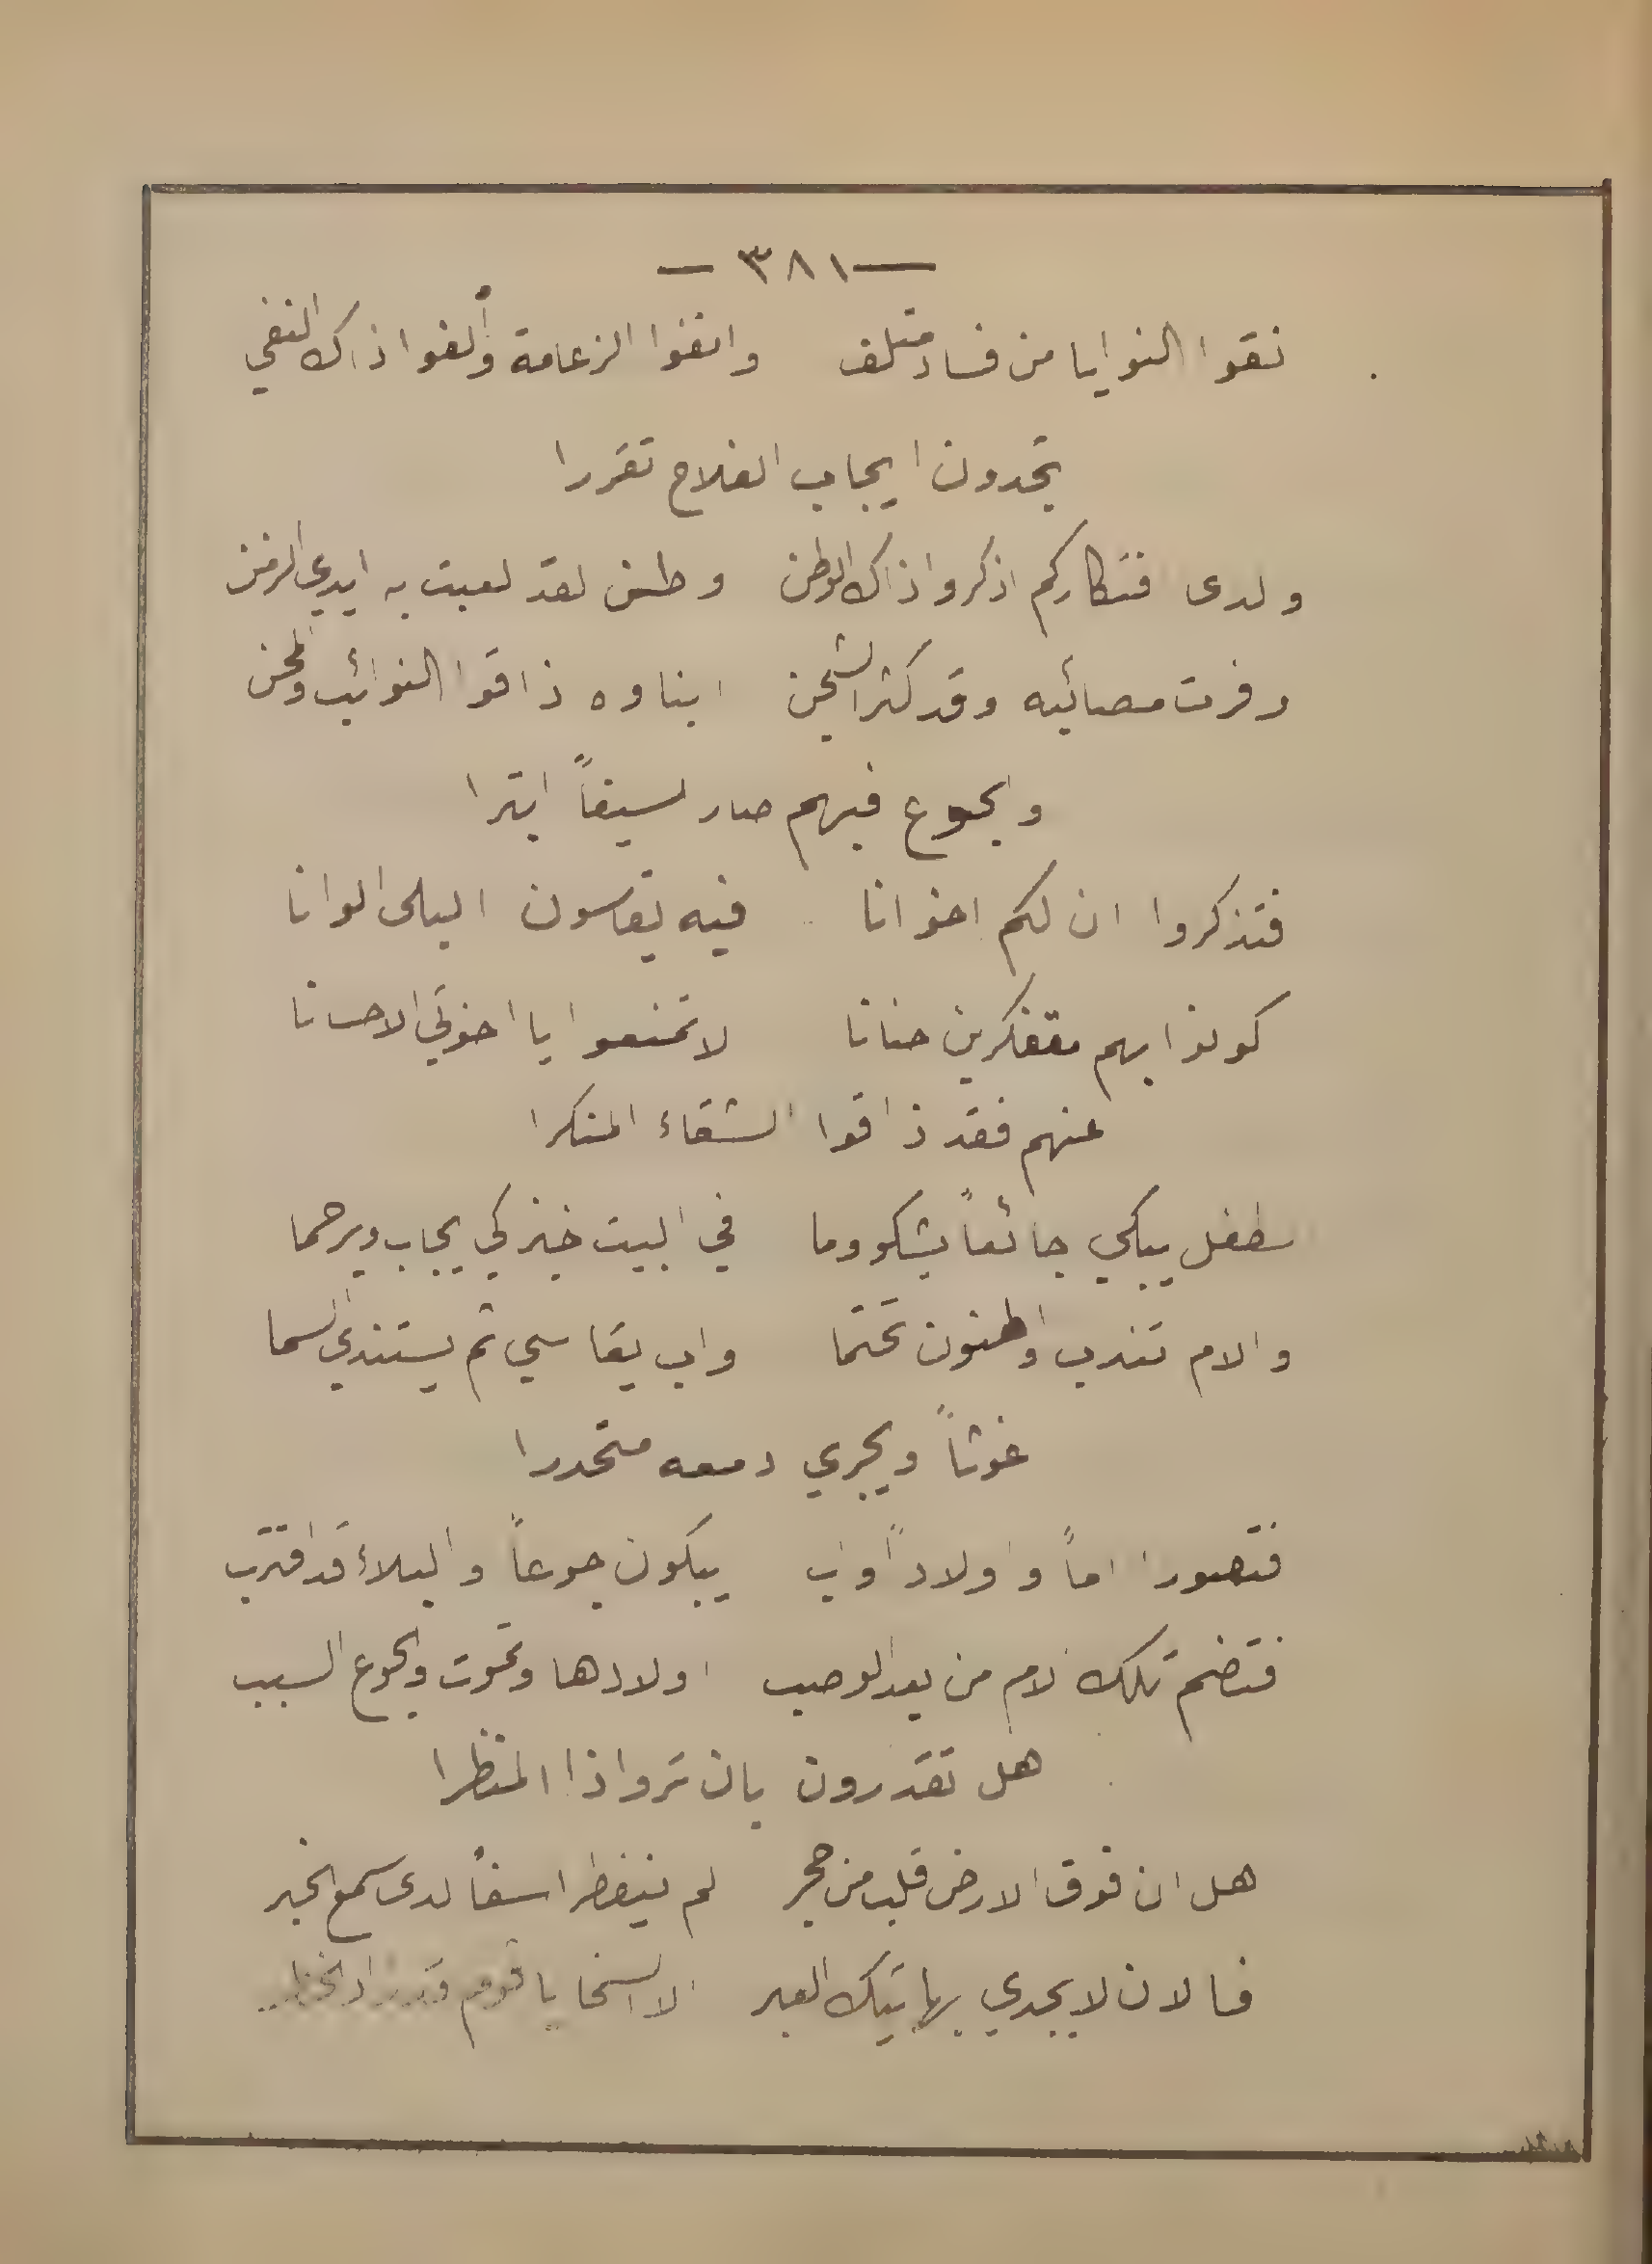 — ٣٨١ —
نقوا النوايا من فساد متلف وانفوا الزعامة وألغوا ذاك النفي
تجدون ايجاب الفلاح تقررا
ولدى افتكاركم اذكروا ذاك الوطن وطن لقد لعبت به ايدي الزمن
وفرت مصائبه وقد كثر الشجن ابناوه ذاقوا النوائب والمحن
والجوع فيهم صار سيفاً ابترا
فتذكروا ان لكم اخوانا فيه يقاسون البلى الوانا
كونوا بهم متفكرين حنانا لا تمنعوا يا اخوتي الاحسانا
عنهم فقد ذاقوا الشقاء المنكرا
الطفل يبكي جائعاً يشكو وما في البيت خبز كي يجاب ويرحما
والام تندب والمنون تحتما واب يقاسي ثم يستندي السما
غوثاً ويجري دمعه متحدرا
فتصوروا اماً واولاداً واب يبكون جوعاً والبلاء قد اقترب
فتضم تلك الام من بعد الوصب اولادها وتموت والجوع السبب
هل تقدرون بان تروا ذا المنظرا
هل ان فوق الارض قلب من حجر لم ينفطر اسفاً لدى سمع الخبر
فالان لا يجدي بهاتيك العبر الا السخا يا قوم قد زاد الخطر